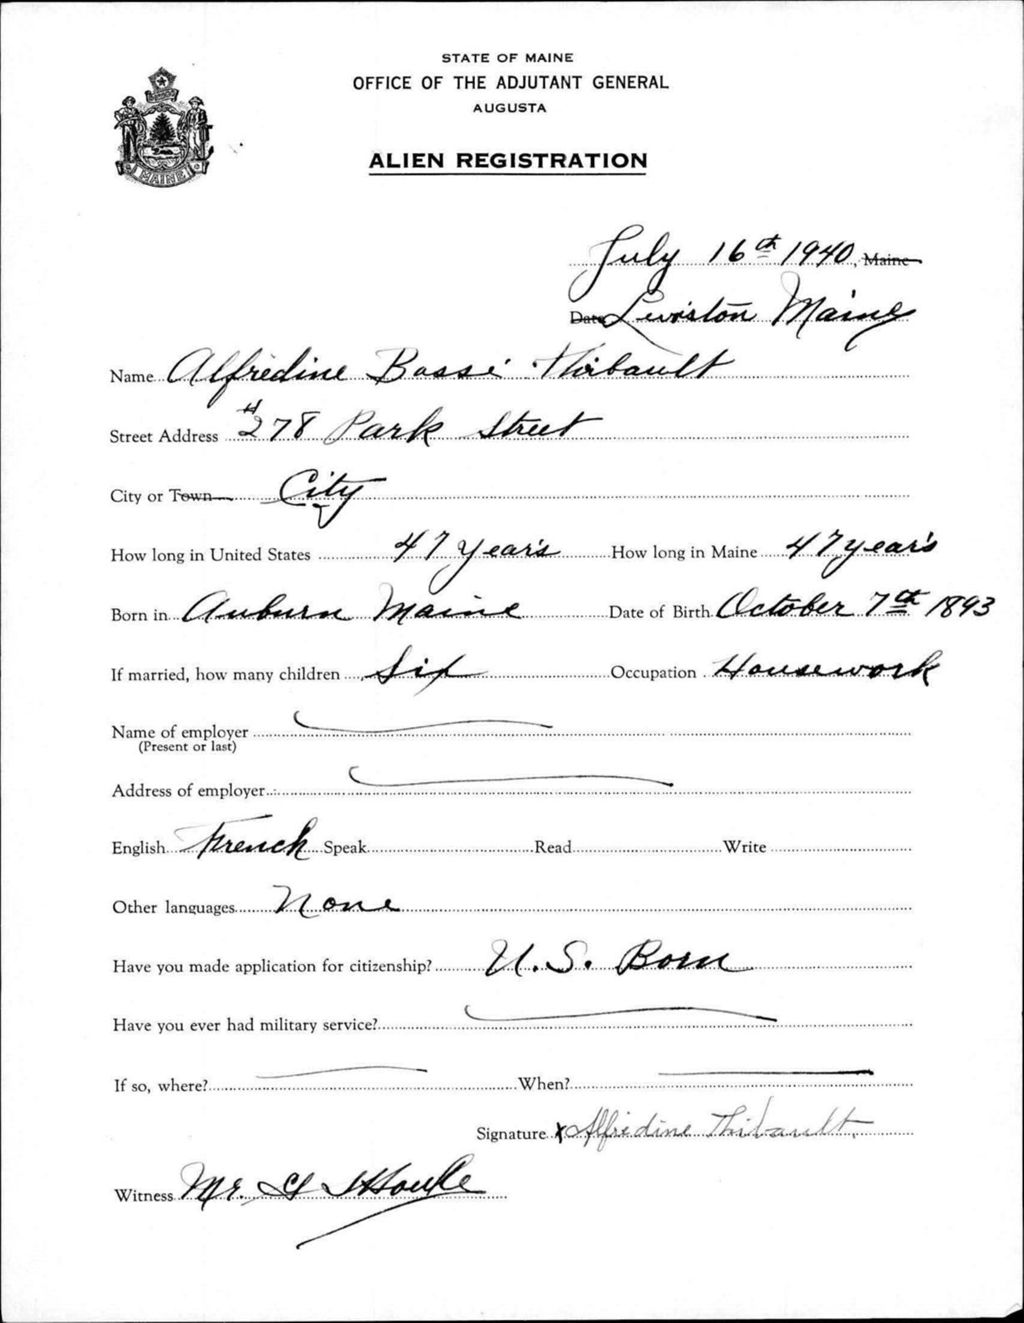 STATE OF MAINE
OFFICE OF THE ADJUTANT GENERAL
AUGUSTA
MAINE
ALIEN REGISTRATION
July 16th 1940, Maine
Date Lewiston Maine
Name Alfredine Bossé Thibault
Street Address #278 Park Street
City or Town City
How long in United States 47 years How long in Maine 47 years
Born in Auburn Maine Date of Birth October 7th 1893
If married, how many children Six Occupation Housework
Name of employer
(Present or last)
Address of employer
English French Speak Read Write
Other languages None
Have you made application for citizenship? U.S. Born
Have you ever had military service?
If so, where? When?
Signature x Alfredine Thibault
Witness Mr.